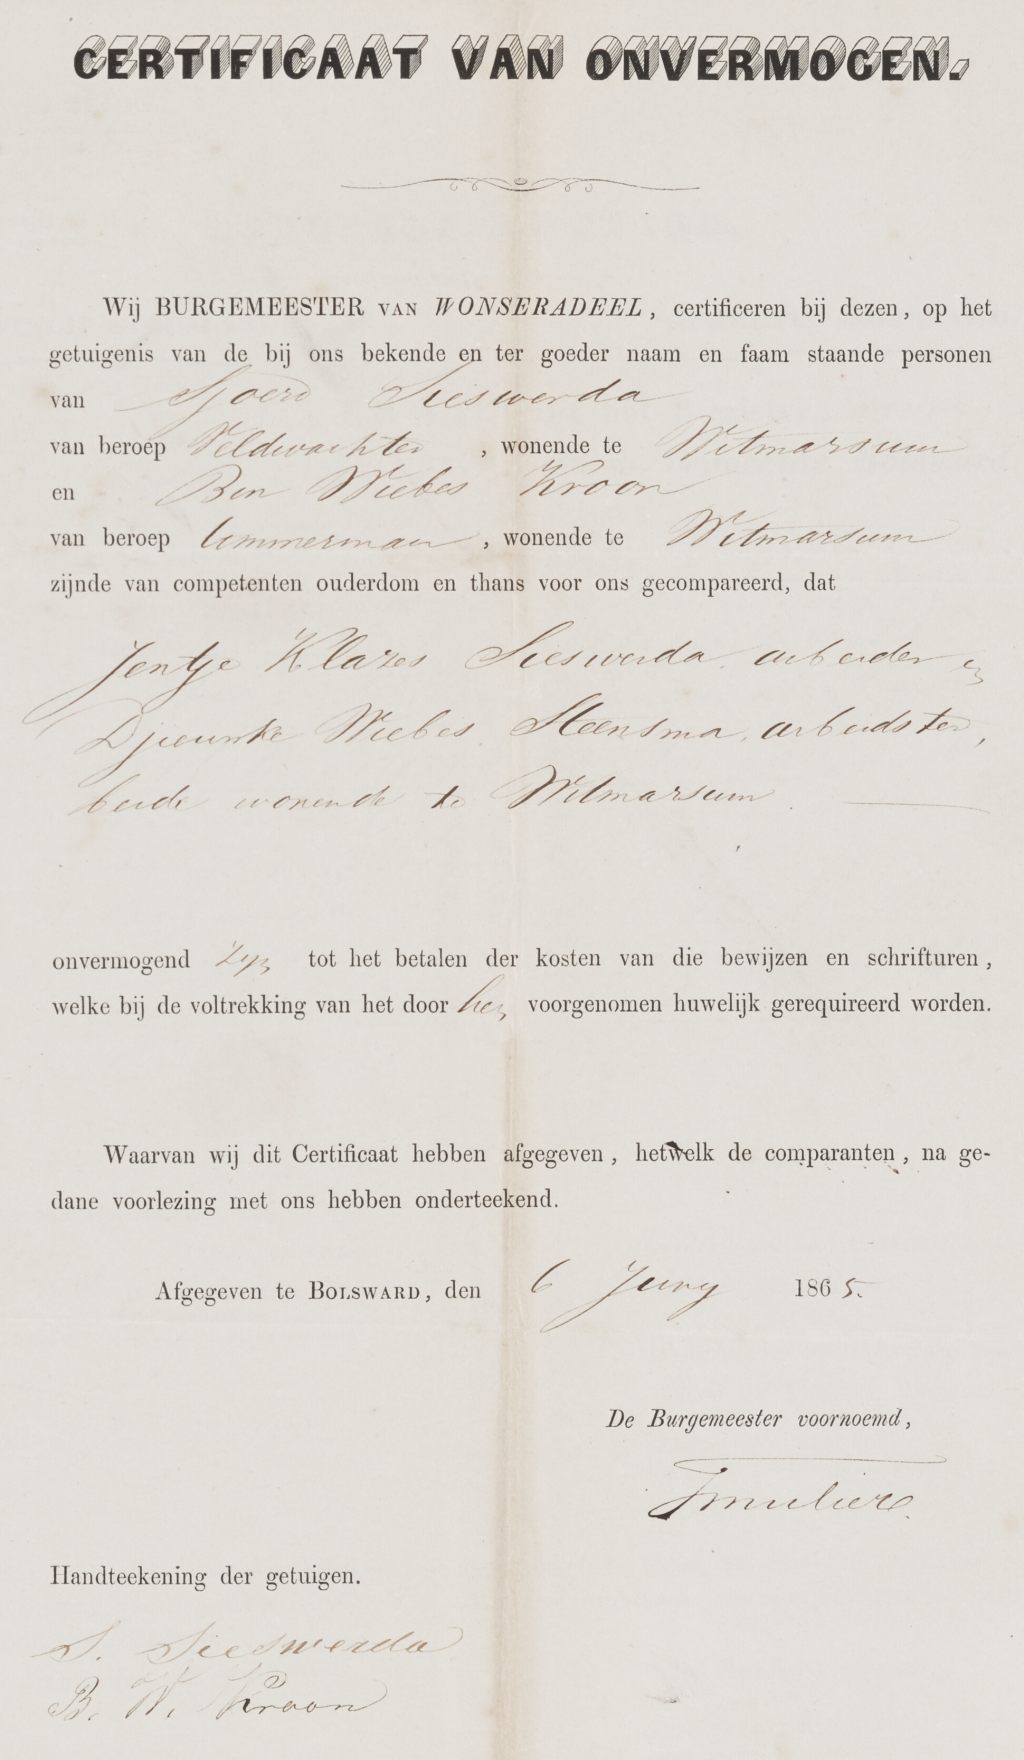 CERTIFICAAT VAN ONVERMOGEN.
Wij BURGEMEESTER VAN WONSERADEEL, certificeren bij dezen, op het
getuigenis van de bij ons bekende en ter goeder naam en faam staande personen
van Sjoerd Sieswerda
van beroep Veldwachter, wonende te Witmarsum
en Ben Wiebes Kroon
van beroep timmerman, wonende te Witmarsum
zijnde van competenten ouderdom en thans voor ons gecompareerd, dat
Jentje Klazes Sieswerda, arbeider en
Wiebes Steensma, arbeidster,
beide wonende te Witmarsum.
onvermogend zyn tot het betalen der kosten van die bewijzen en schrifturen,
welke bij de voltrekking van het door hen voorgenomen huwelijk gerequireerd worden.
Waarvan wij dit Certificaat hebben afgegeven, hetwelk de comparanten, na ge-
dane voorlezing met ons hebben onderteekend.
Afgegeven te BOLSWARD, den 6 Juny 1865.
De Burgemeester voornoemd,
Handteekening der getuigen.
S. Sieswerda
B. W. Kroon